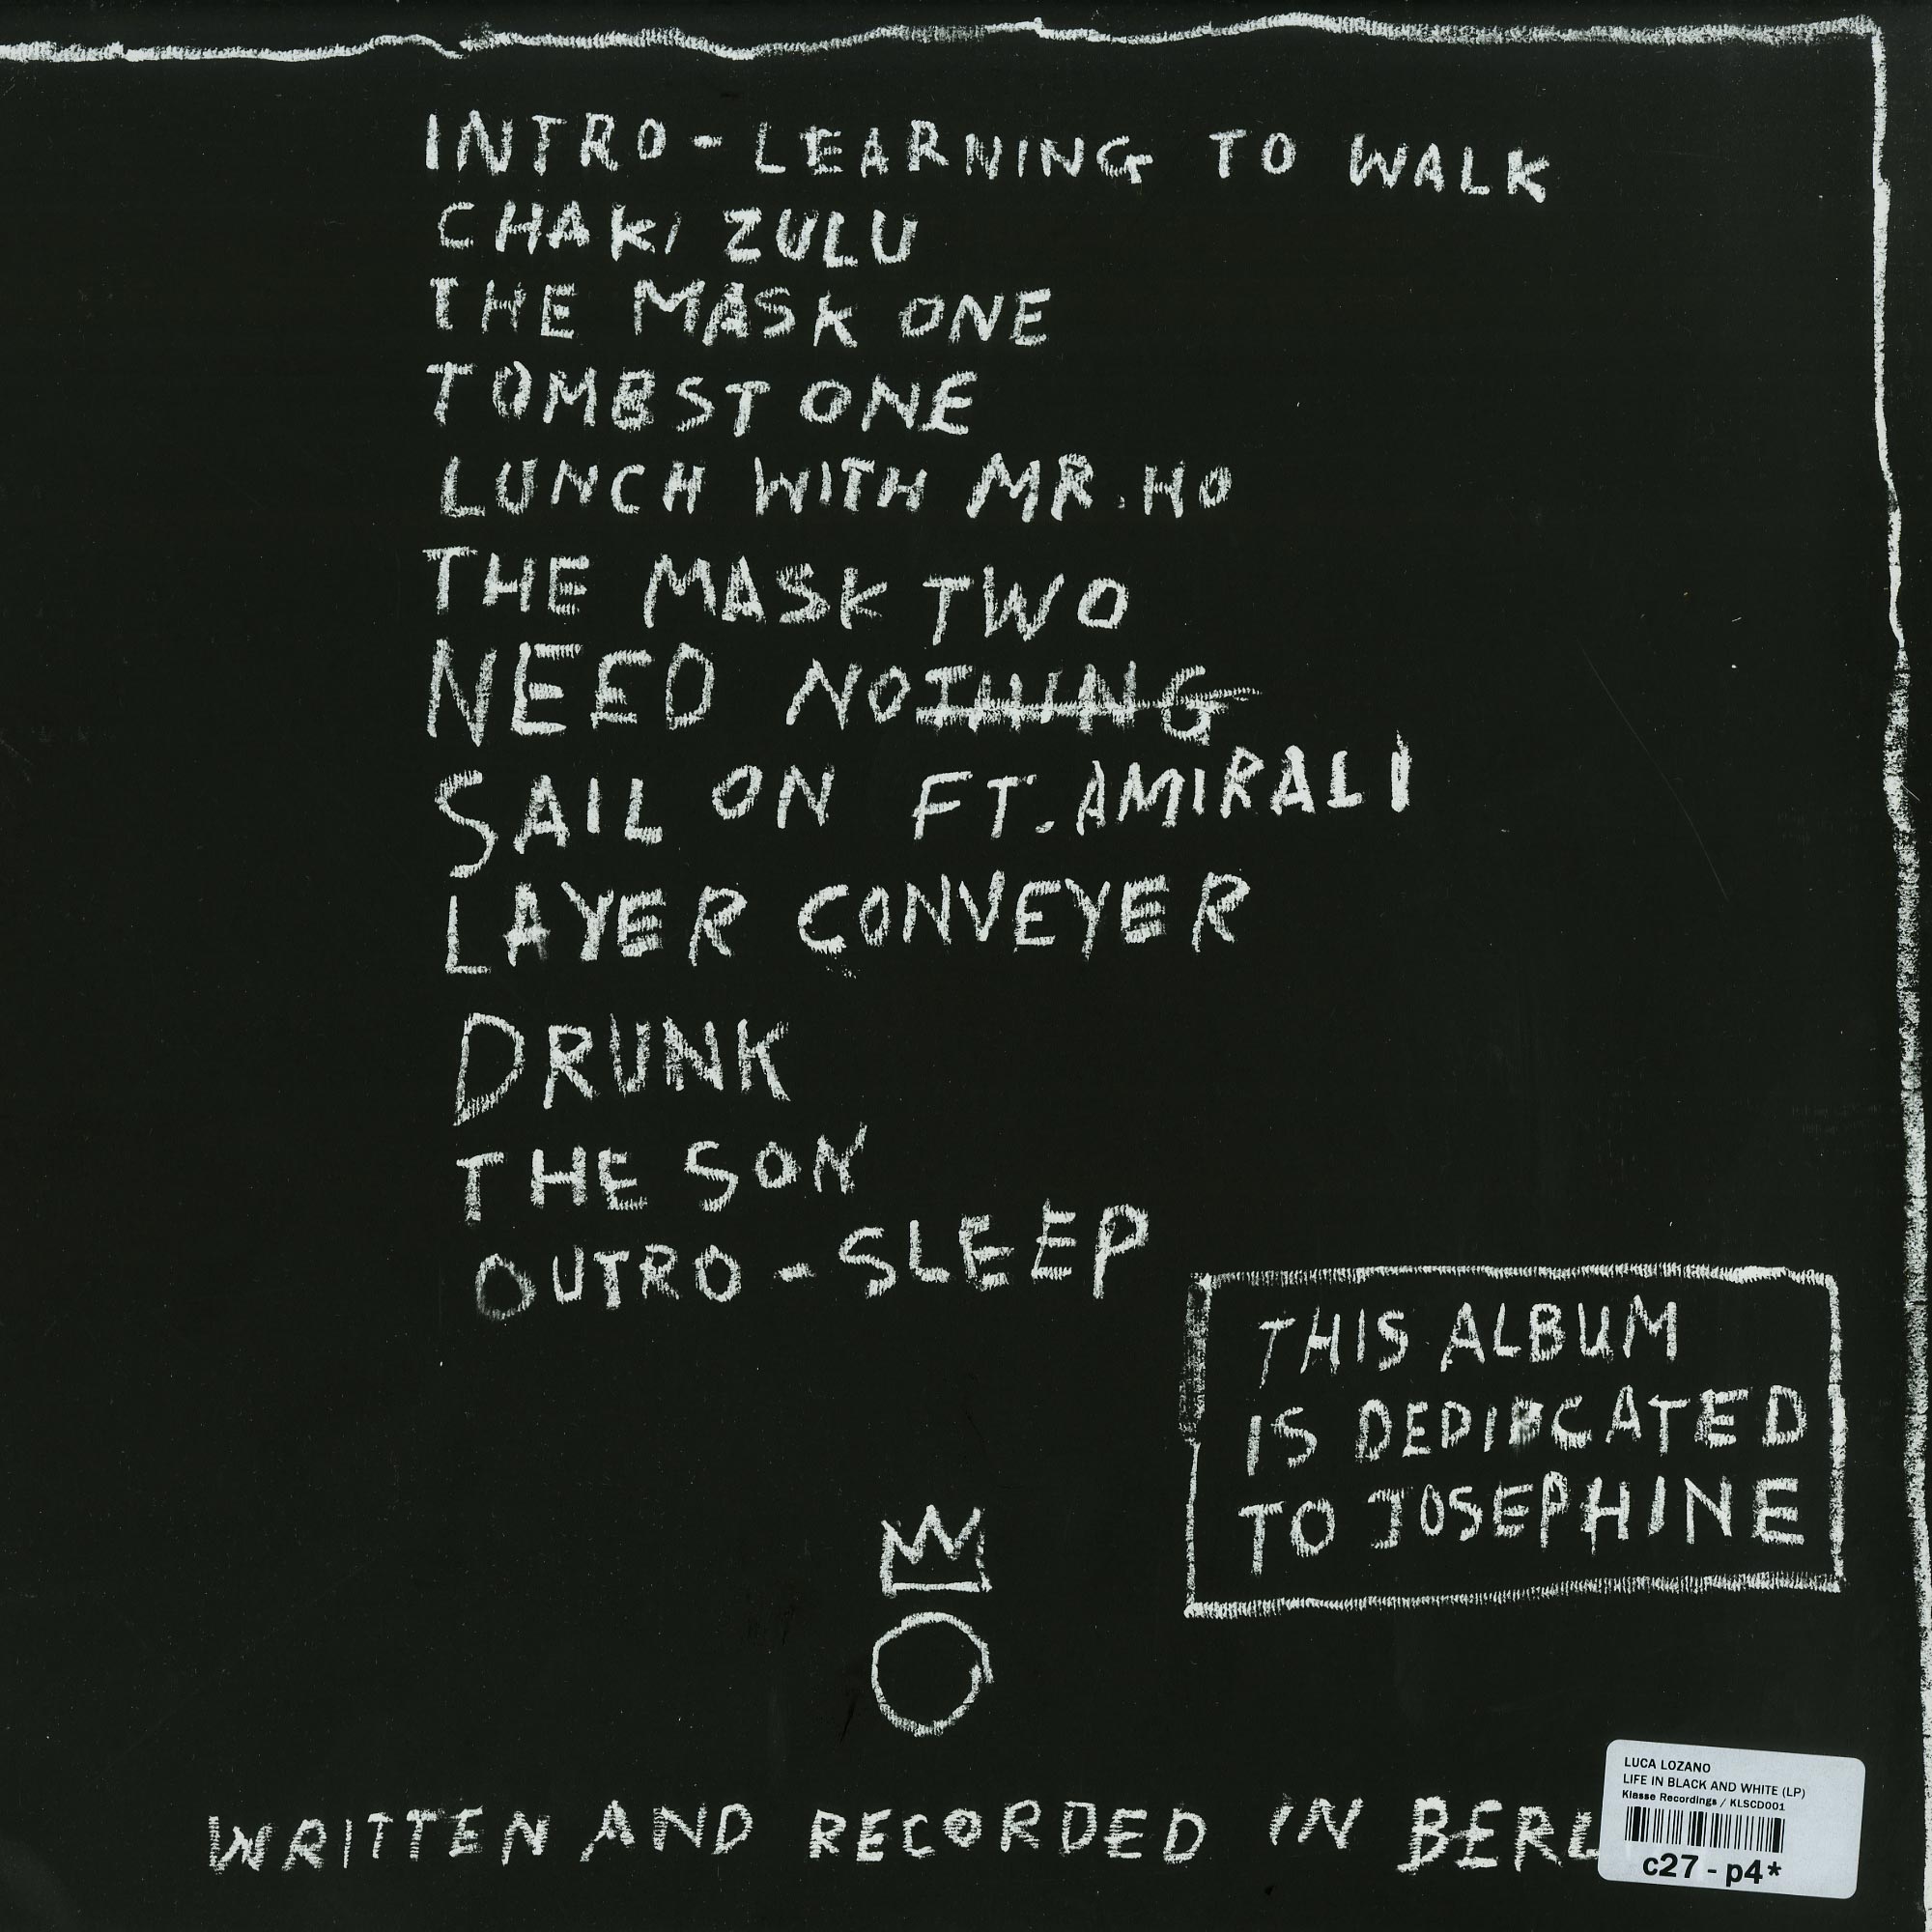 INTRO - LEARNING TO WALK
CHAKI ZULU
THE MASK ONE
TOMBSTONE
LUNCH WITH MR. HO
THE MASK TWO
NEED NOTHING
SAIL ON FT. AMIRALI
LAYER CONVEYER
DRUNK
THE SON
OUTRO - SLEEP
THIS ALBUM
IS DEDICATED
TO JOSEPHINE
WRITTEN AND RECORDED IN BERL
LUCA LOZANO
LIFE IN BLACK AND WHITE (LP)
Klasse Recordings / KLSCD001
c27 - p4*